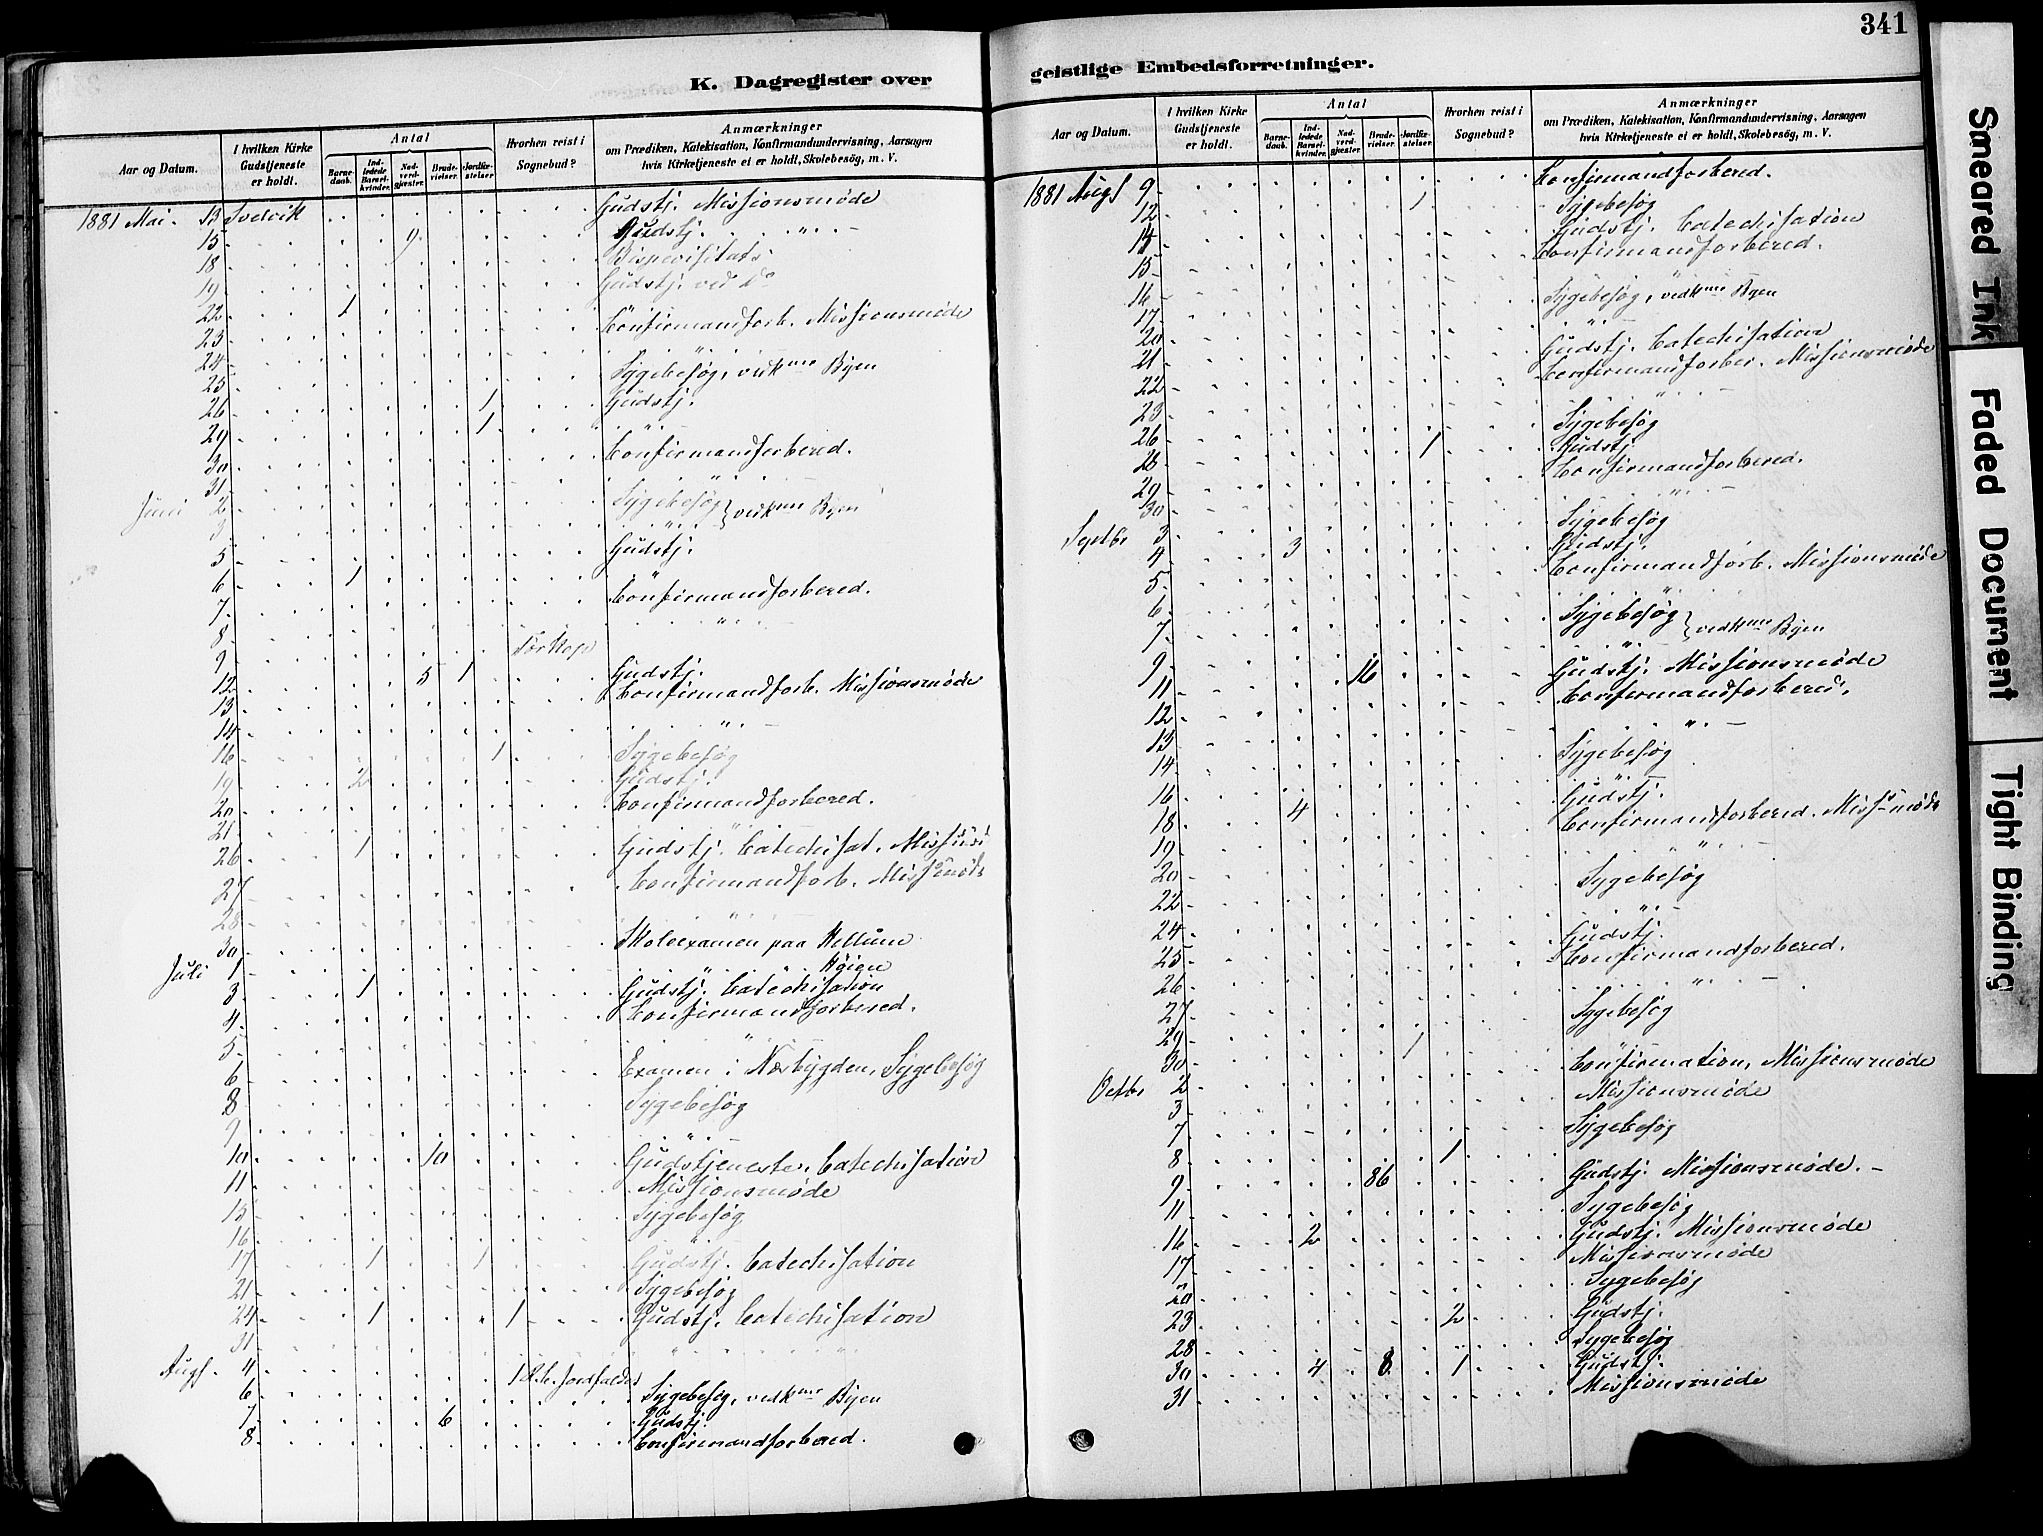 K. Dagregister over
Aar og Datum. I hvilken Kirke Gudstjeneste er holdt. Antal Barnedaab. Indledede Barselkvinder. Nadverdgjæster. Brudevielser. Jordfæstelser Hvorhen reist i Sognebud? Anmærkninger om Prædiken, Katekisation, Konfirmandundervisning, Aarsagen hvis Kirketjeneste ei er holdt, Skolebesög, m. V.
1881 Mai. 13 Svelvik Gudstj. Missionsmøde
15 9 Gudstj. " -
18 Bispevisitats
19 Gudstj. ved do
22 1 Confirmandforb. Missionsmøde
23 "
24 Sygebesøg, vedkmr Byen
25 1 Gudstj.
26 1 "
29 Confirmandforbered.
30 "
31 Sygebesøg } vedkmr Byen
Juni 2 "
3 Gudstj.
5 "
6 1 Confirmandforbered.
7 "
8 Tørkop
9
12 5 1 Gudstj.
13 Confirmandforb. Missionsmøde
14 " -
16 1 Sygebesøg
19 2 Gudstj.
20 Confirmandforbered.
21 "
26 1 Gudstj. Catechisat.
27 Confirmandforb. Missmøde
28 "
30 Skoleexamen paa Hellum
Juli 1 Høien
3 1 Gudstj. Catechisation
4 Confirmandforbered.
5 "
6 Examen i Nærbygden, Sygebesøg
8 Sygebesøg
9 "
10 10 Gudstjeneste, Catechisation
11 Missionsmøde
15 Sygebesøg
16 "
17 1 1 Gudstj. Catechisation
21 Sygebesøg
24 1 1 Gudstj. Catechisation
31 " "
Augs. 4 1
6 Sygebesøg, vedkmr Byen
7 6 Gudstj.
8 Confirmandforbered.
341
geistlige Embedsforretninger.
Aar og Datum. I hvilken Kirke Gudstjeneste er holdt. Antal Barnedaab. Indledede Barselkvinder. Nadverdgjæster. Brudevielser. Jordfæstelser Hvorhen reist i Sognebud? Anmærkninger om Prædiken, Katekisation, Konfirmandundervisning, Aarsagen hvis Kirketjeneste ei er holdt, Skolebesög, m. V.
1881 Augs 9 Confirmandforbered.
12 1 Sygebesøg
14 Gudstj. Catechisation
15 Confirmandforbered.
16 "
17 Sygebesøg, vedkmr Byen
20 "
21 Gudstj. Catechisation
22 Confirmandforber. Missionsmøde
23 "
26 Sygebesøg
28 1 Gudstj.
29 Confirmandforbered.
30 " -
Septbr 3 Sygebesøg
4 3 Gudstj.
5 Confirmandforb. Missionsmøde
6 "
7 Sygebesøg } vedkmr Byen
9 "
11 16 Gudstj. Missionsmøde
12 Confirmandforbered.
13 " -
14 Sygebesøg
16 "
18 4 Gudstj.
19 Confirmandforbered. Missmøde
20 " -
22 Sygebesøg
24 "
25 Gudstj.
26 Confirmandforbered.
27 " -
29 Sygebesøg
30 1 "
Octbr 2 Confirmation, Missionsmøde
3 Missionsmøde
7 Sygebesøg
8 1
9 86 Gudstj. Missionsmøde. -
11 Sygebesøg
16 2 Gudstj. Missionsmøde
17 Missionsmøde
20 Sygebesøg
23 2 Gudstj.
28 Sygebesøg
30 4 8 1 Gudstj.
31 Missionsmøde
Smeared Ink
Faded Document
Tight Binding